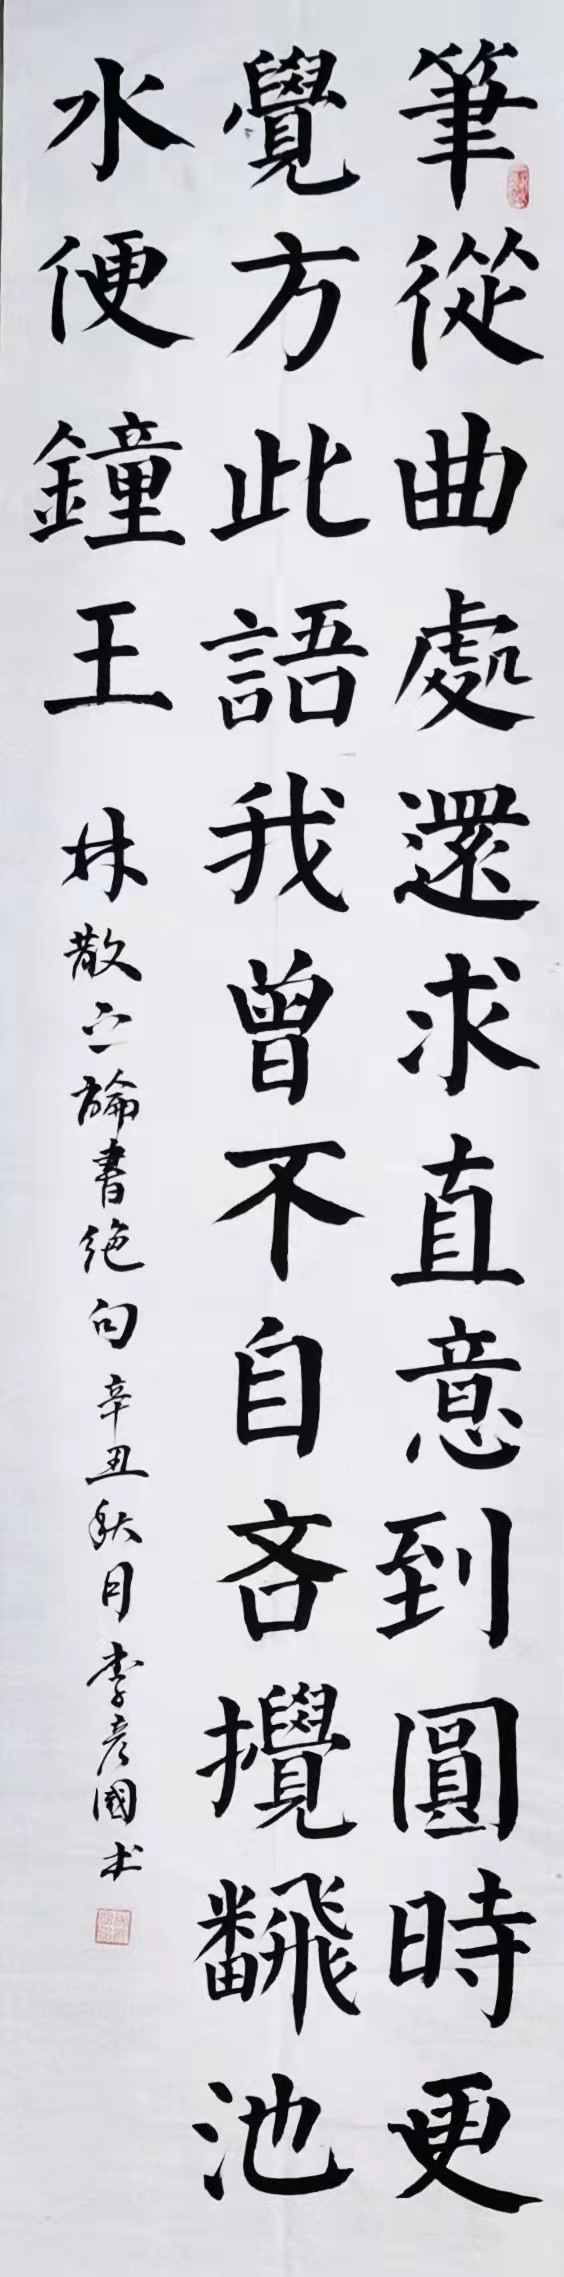 筆從曲處還求直意到圓時更
覺方此語我曾不自吝攪飜池
水便鐘王
林散之論書絶句辛丑秋月李彦國书